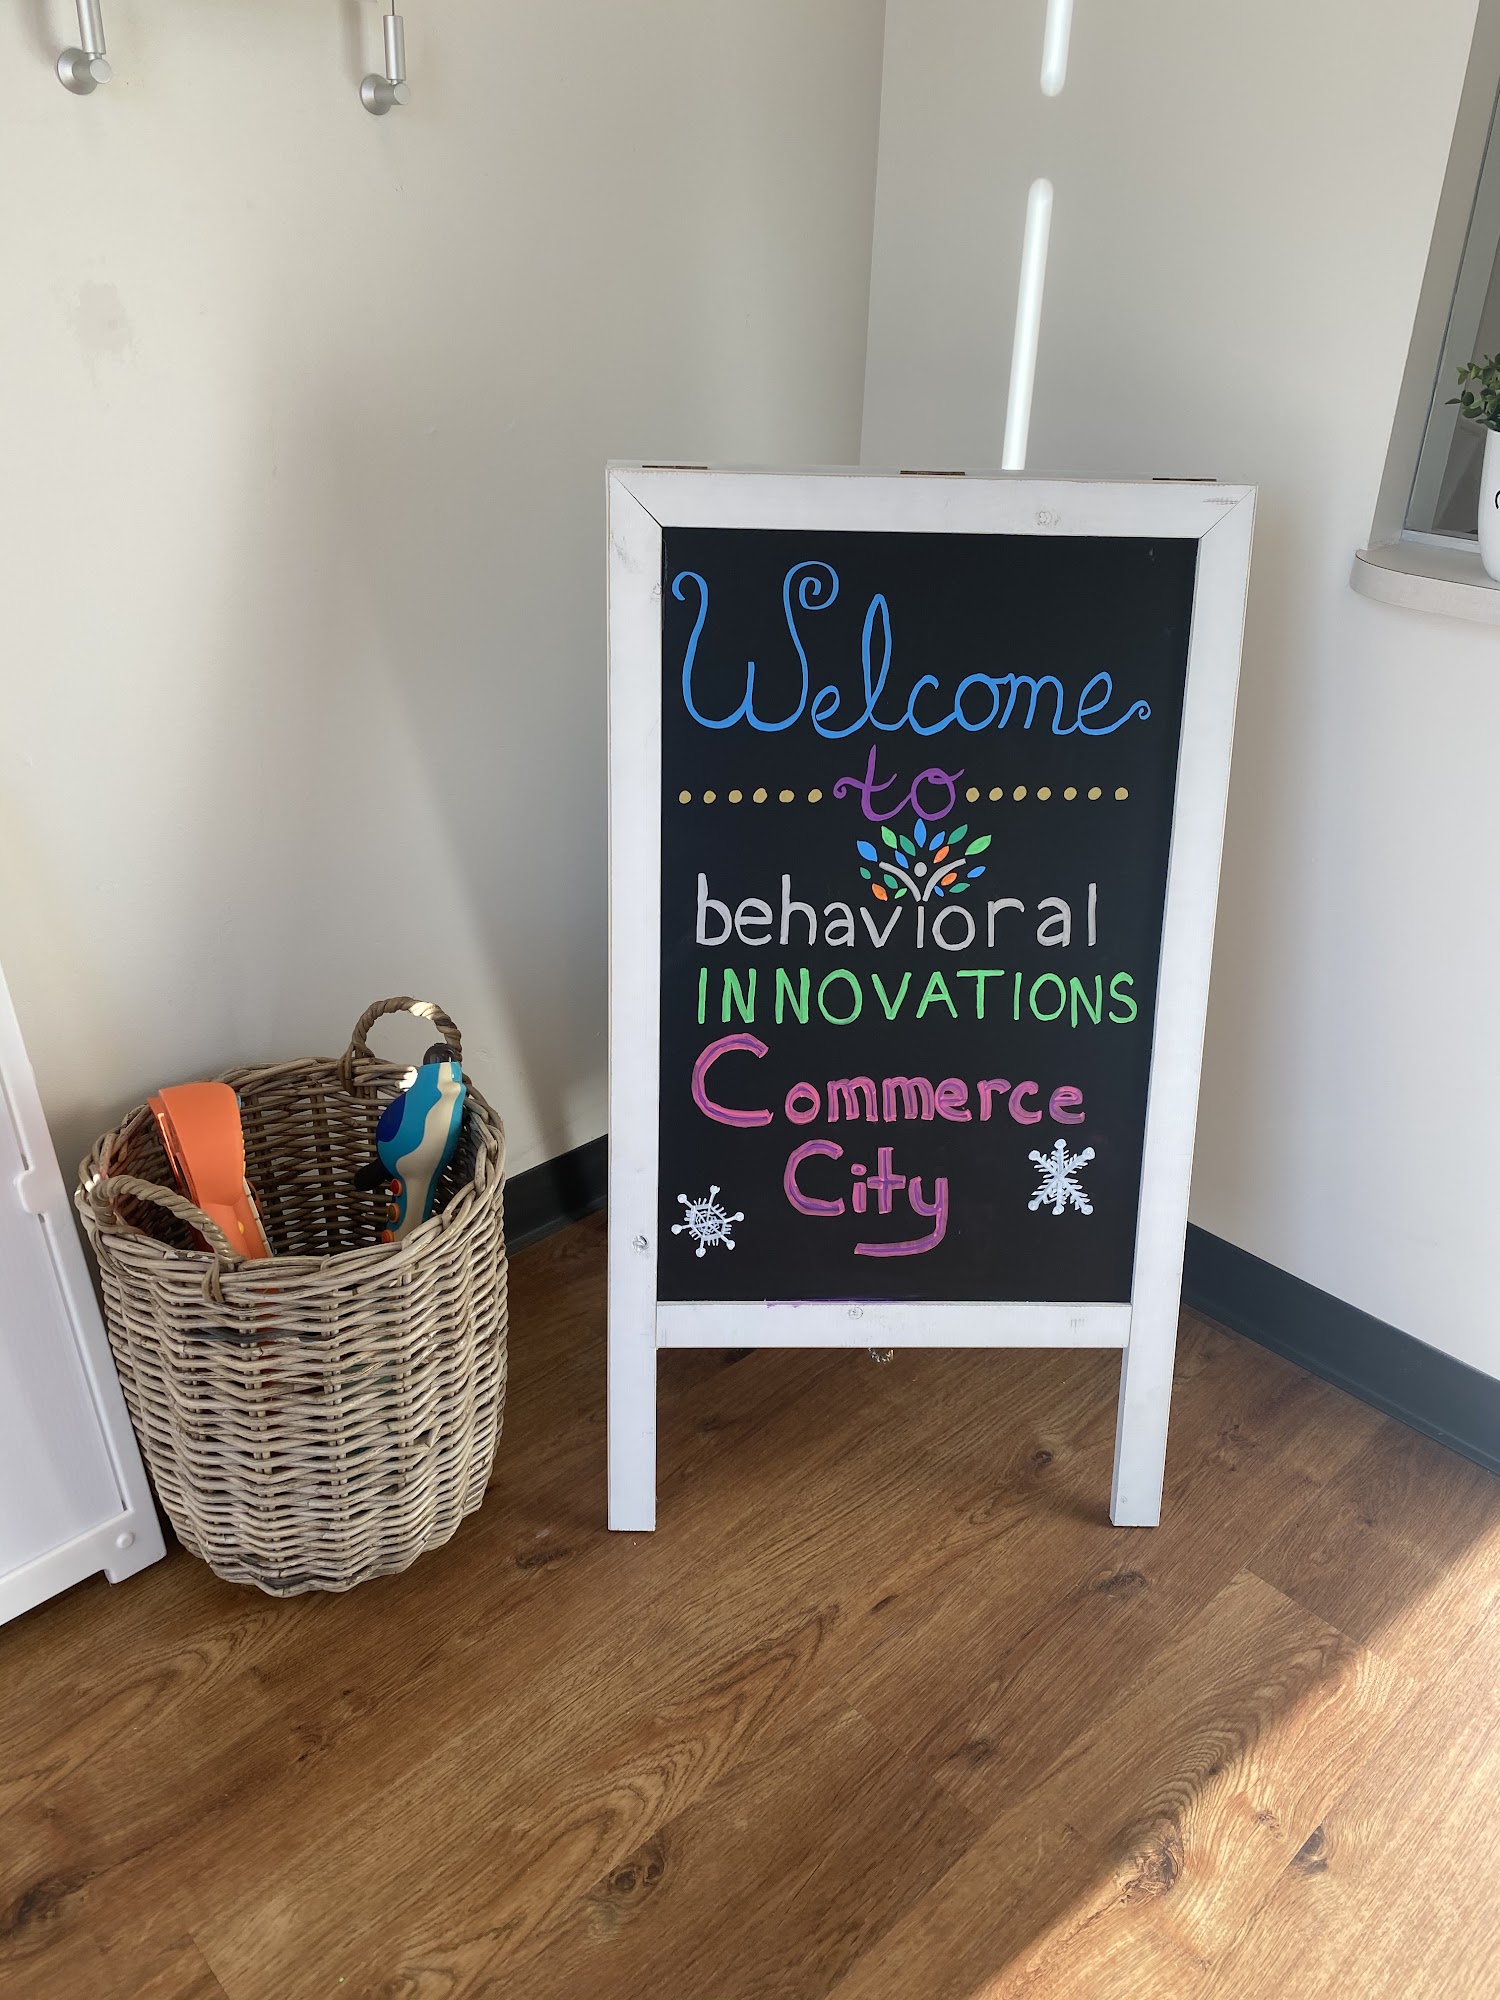 Welcome
to
behavioral
INNOVATIONS
Commerce
City